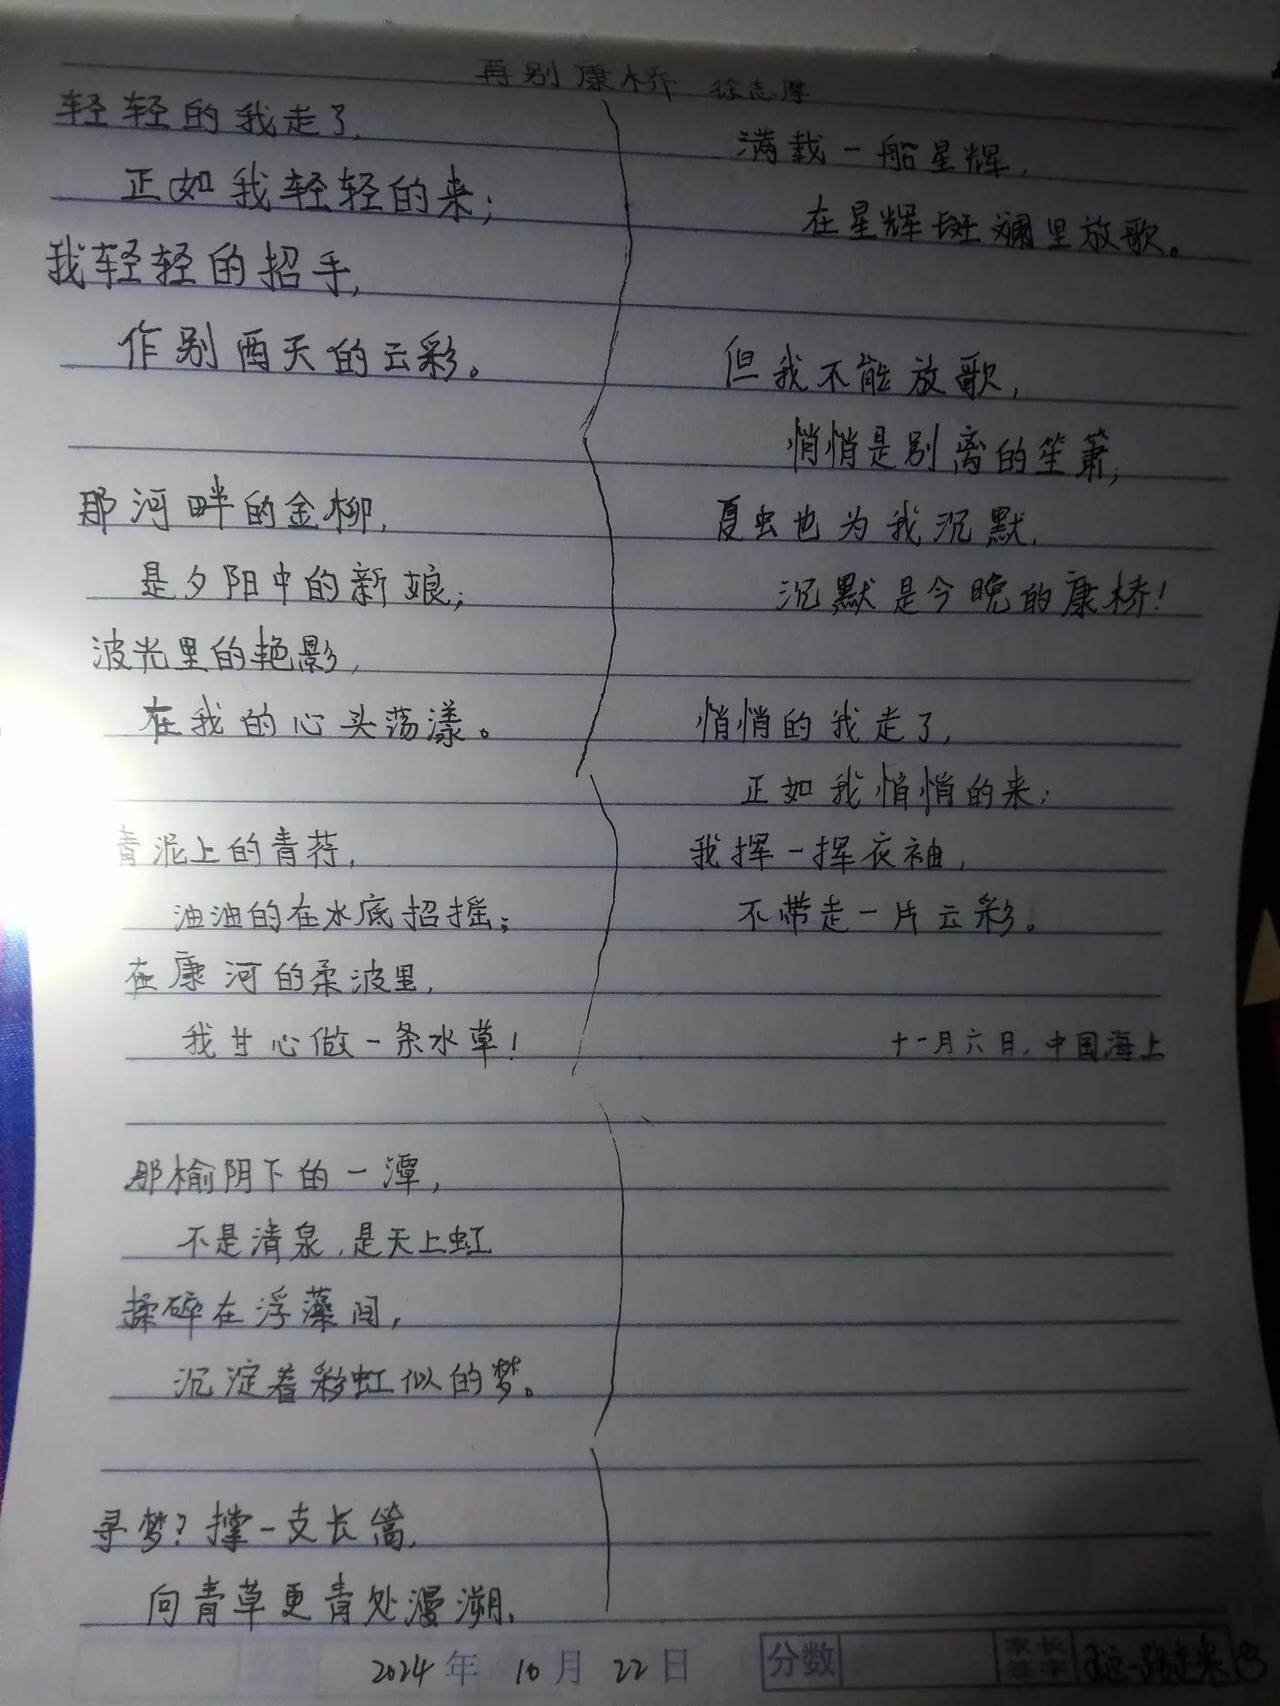 再别康桥 徐志摩
轻轻的我走了,
正如我轻轻的来;
我轻轻的招手,
作别西天的云彩。
那河畔的金柳,
是夕阳中的新娘;
波光里的艳影,
在我的心头荡漾。
青泥上的青荇,
油油的在水底招摇;
在康河的柔波里,
我甘心做一条水草!
那榆阴下的一潭,
不是清泉,是天上虹
揉碎在浮藻间,
沉淀着彩虹似的梦。
寻梦?撑一支长篙,
向青草更青处漫溯,
满载一船星辉,
在星辉斑斓里放歌。
但我不能放歌,
悄悄是别离的笙箫;
夏虫也为我沉默,
沉默是今晚的康桥!
悄悄的我走了,
正如我悄悄的来;
我挥一挥衣袖,
不带走一片云彩。
十一月六日,中国海上
2024年 10月 22日 分数 家长签字